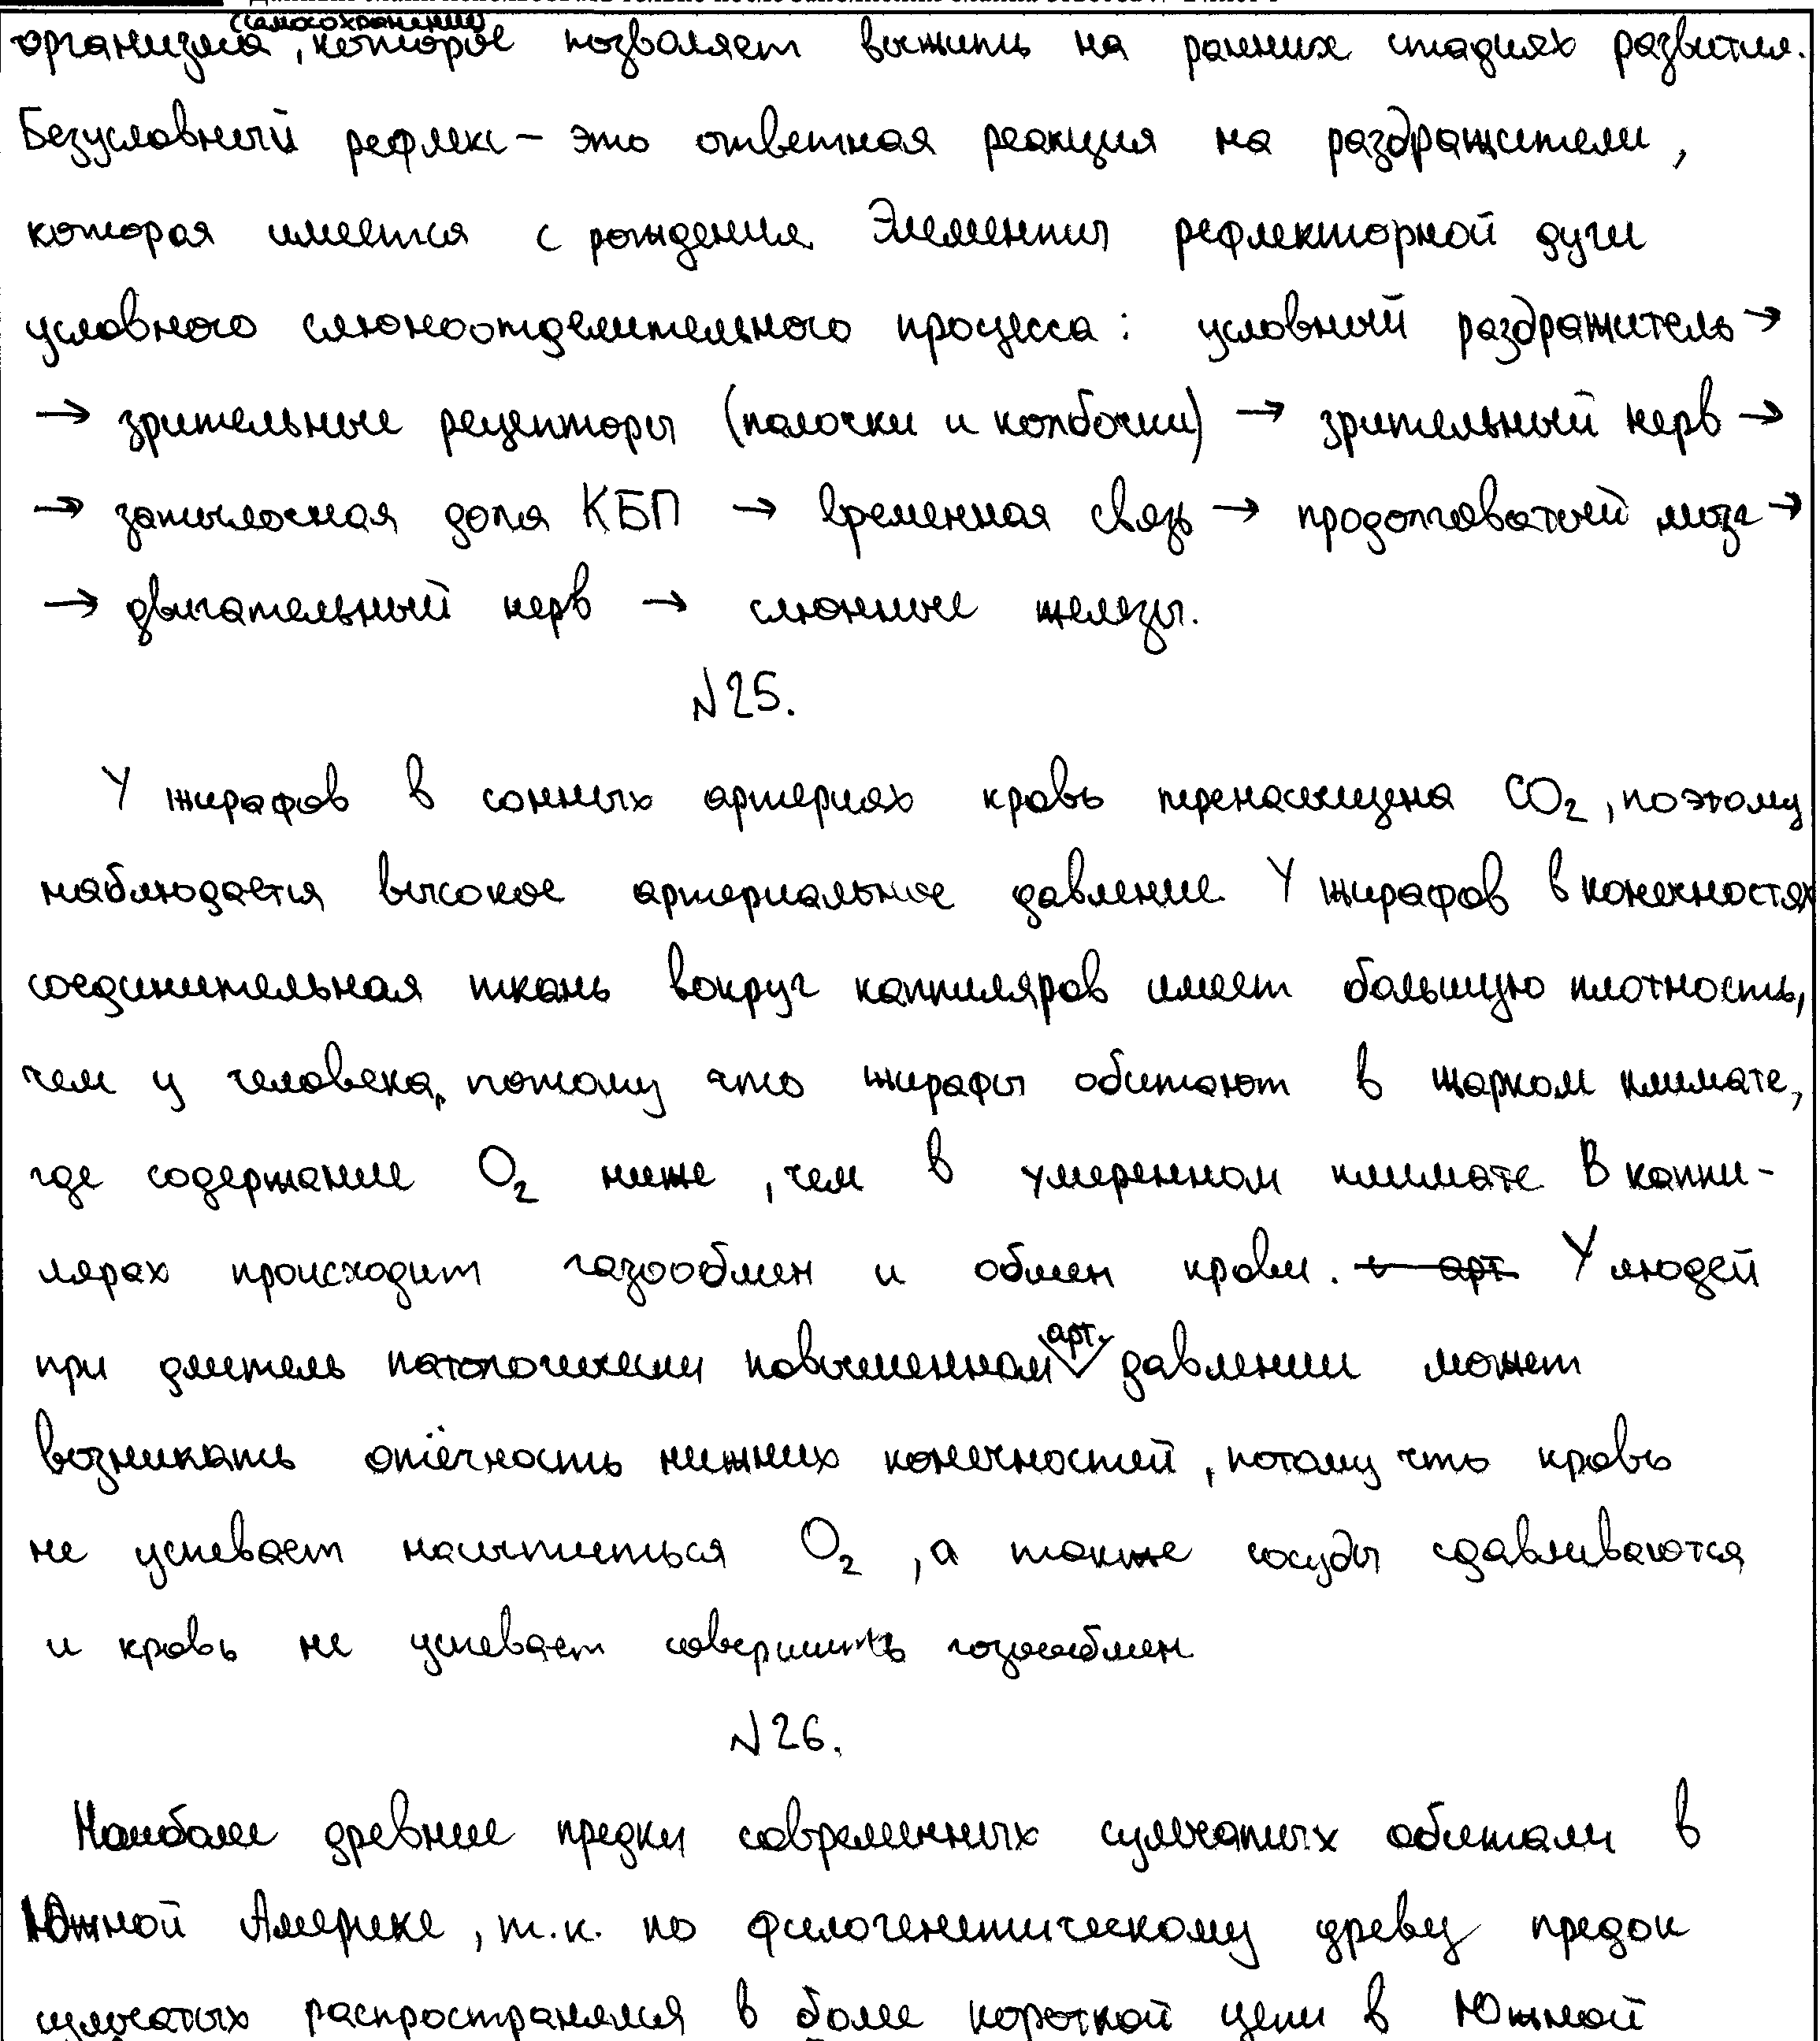 (самосохранение)
организма, которое позволяет выжить на ранних стадиях развития.
Безусловный рефлекс – это ответная реакция на раздражители,
которая имеется с рождения. Элементы рефлекторной дуги
условного слюноотделительного процесса: условный раздражитель →
→ зрительные рецепторы (палочки и колбочки) → зрительный нерв →
→ затылочная доля КБП → временная связь → продолговатый мозг →
→ двигательный нерв → слюнные железы.
№25.
У жирафов в сонных артериях кровь перенасыщена CO₂, поэтому
наблюдается высокое артериальное давление. У жирафов в конечностях
соединительная ткань вокруг каппиляров имеет большую плотность,
чем у человека, потому что жирафы обитают в жарком климате,
где содержание O₂ ниже, чем в умеренном климате. В каппи-
лярах происходит газообмен и обмен крови. У людей
при длитель патологически повышенном арт. давлении может
возникать отёчность нижних конечностей, потому что кровь
не успевает насытиться O₂, а также сосуды сдавливаются
и кровь не успевает совершить газообмен
№26.
Наиболее древние предки современных сумчатых обитали в
Южной Америке, т.к. по филогенетическому древу предок
сумчатых распространялся в более короткой цепи в Южной